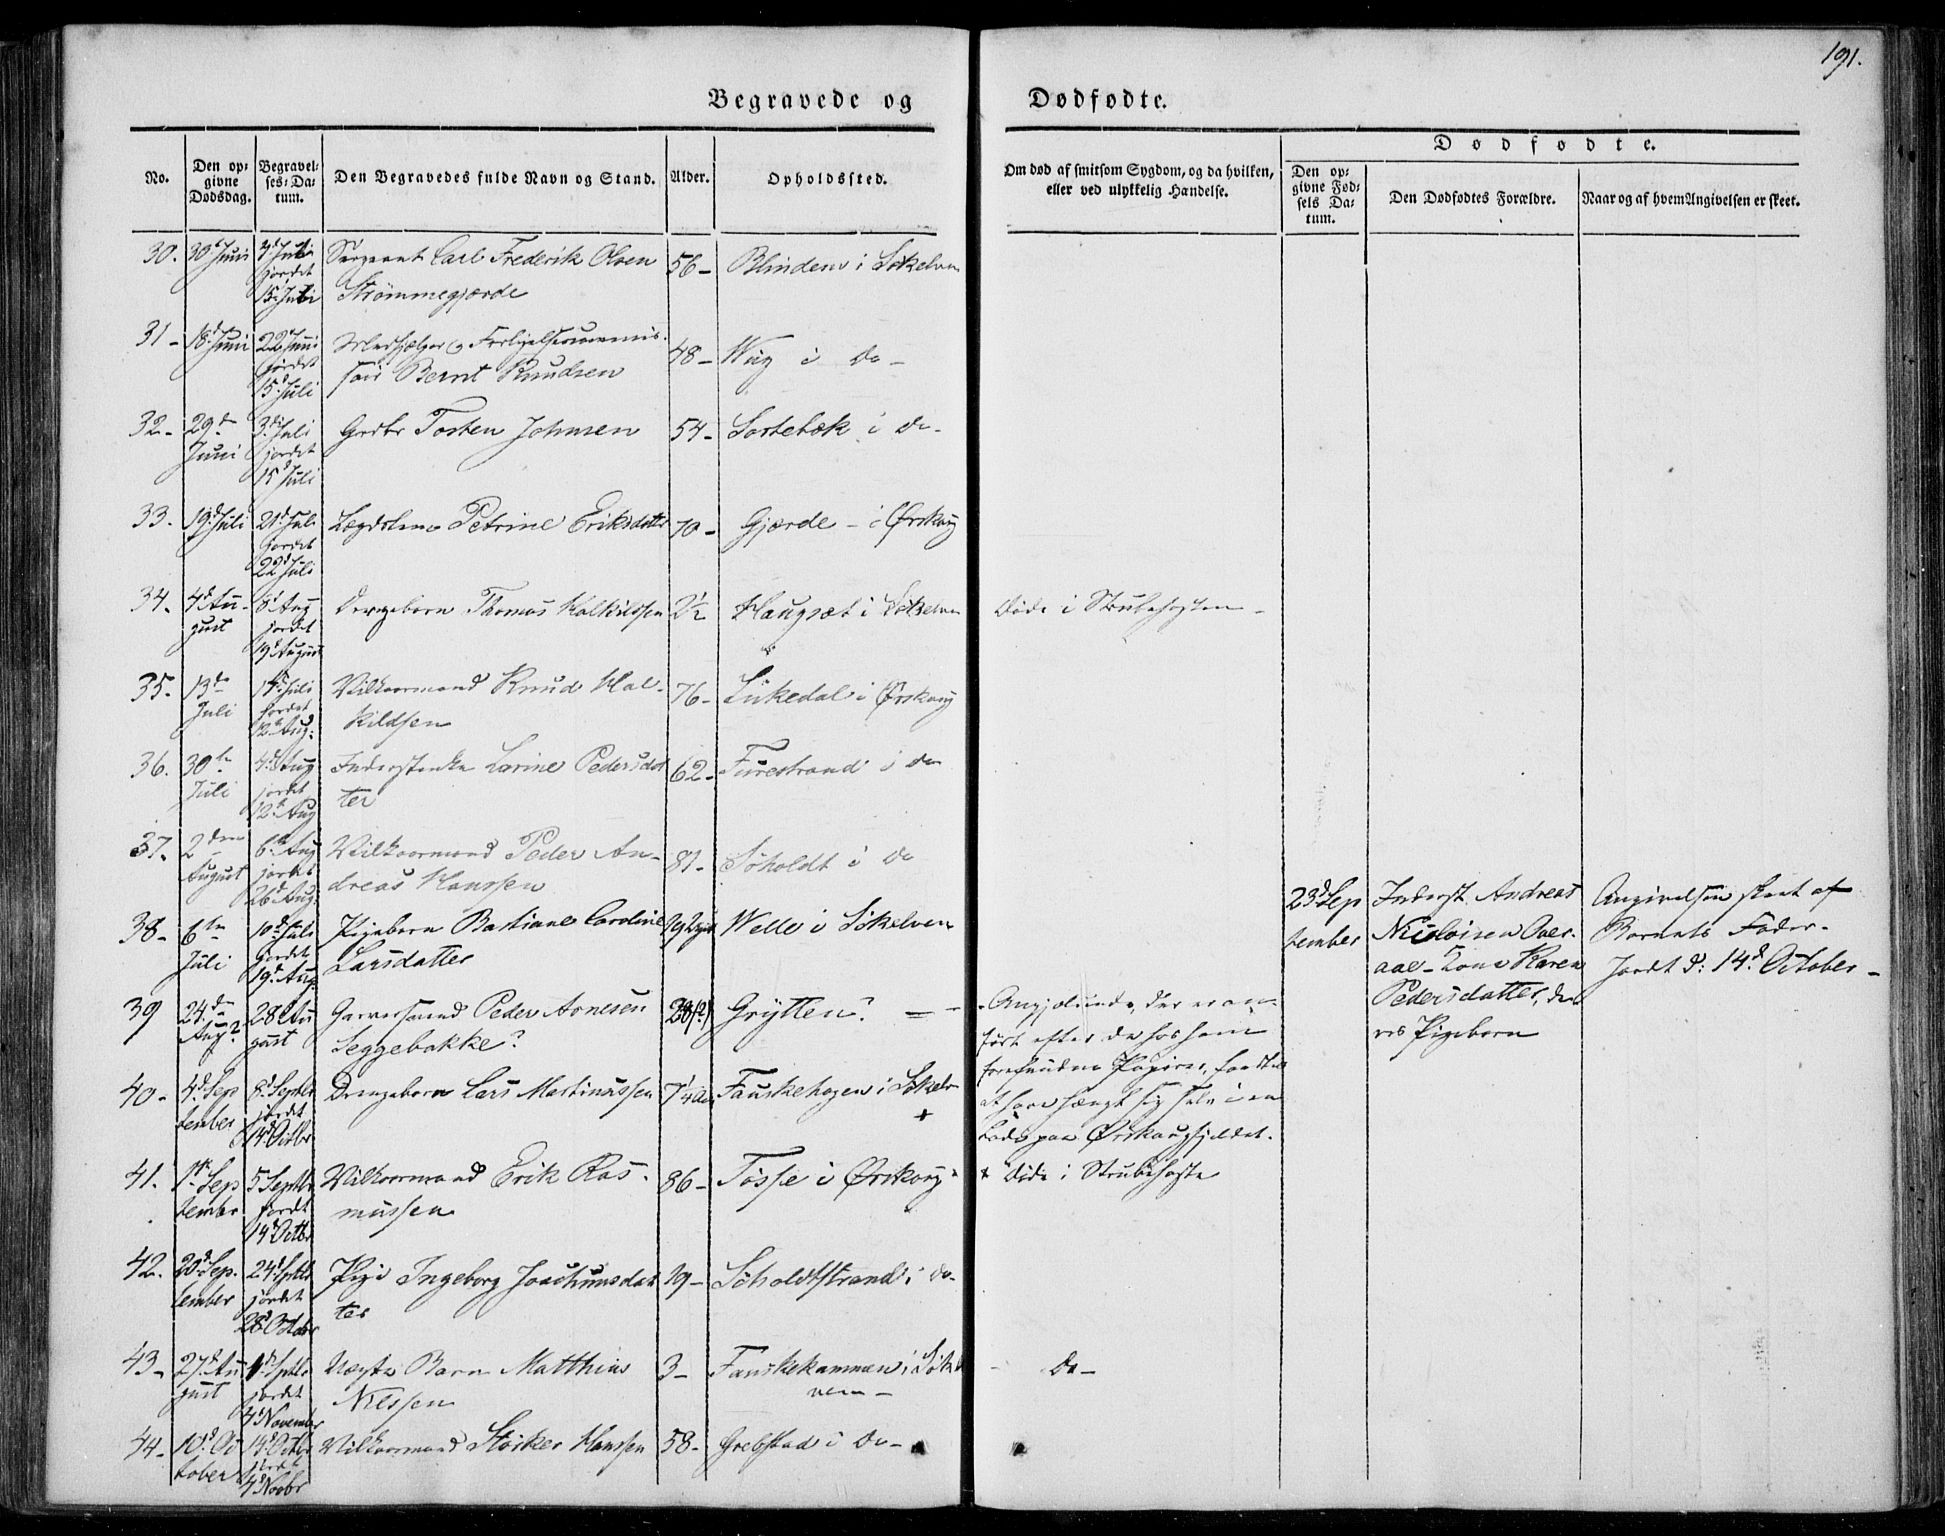 191.
Begravede og
Dødfødte.
No.
Den op-
givne
Dødsdag.
Begravel-
ses-Da-
tum.
Den Begravedes fulde Navn og Stand.
Alder.
Opholdssted.
Om død af smitsom Sygdom, og da hvilken,
eller ved ulykkelig Hændelse.
Dødfødte.
Den op-
givne Fød-
sels Da-
tum.
Den Dødfødtes Forældre.
Naar og af hvem Angivelsen er skeet.
30. 30 Juni 4d Juli jordet 15 Juli Sergeant Carl Frederik Olsen 56 - Blindem i Søkelven
Strømmegjærde
31 - 18d Juni 22d Juni jordet 15d Juli Medhjælper og Forligelsescommis-
sair Bernt Knudsen 48 - Wiig i do -
32 - 29de Juni 3d Juli jordet 15d Juli Grdbr Tosten Johnsen 54 - Sortebæk i do -
33. 19d Juli 21d Juli jordet 22d Juli Lægdslem Petrine Eriksdatter 70 - Gjærde - i Ørskoug
34. 4d August 8d Aug jordet 19d August Drengebarn Thomas Halkildsen 2½ Haugsæt i Søkelven Døde i Strubehosten -
35. 13de Juli 17d Juli jordet 12te Aug: Vilkaarmand Knud Hal-
kildsen 76 - Lukedal i Ørskoug
36. 30te Juli 4d Aug jordet 12te Aug Inderstenke Larine Pedersdat
ter 62 - Furestrand i do
37. 2den August 6te Aug jordet 26d Aug. Vilkaarmand Peder An-
dreas Hanssen 81 - Søholdt i do
38 - 6te Juli 10d Juli jordet 19d Aug. Pigebarn Bastiane Caroline
Larsdatter Welle i Søkelven
23d Sep
tember
Inderst. Andreas
Nicolaisen Over-
aae - Kone Karen
Pedersdatter, de
res Pigebarn
Angivelsen skeet af
Barnets Fader -
Jordt d: 14d October -
39 24de Aug? 28d August Garversvend Peder Arnesen
Seggebakke? 28(?) Grytten? - -
Angjældende, der er an-
ført efter de hos ham
forefundne Papirer, fandtes
at have hængt sig selv i en
Lade paa Ørskougfjeldet.
40 - 4d September 8d Septbr jordet 14d Octbr Drengebarn Lars Martinussen 7¼ Fauskehagen i Søkelv
+
41. 1ste September 5 Septbr jordt 14d Octbr Vilkaarmand Erik Ras-
mussen 86 - Tøsse i Ørskoug
+ Døde i Strubehoste
42. 20d September 24d Septbr jordet 28d Octobr Pige Ingeborg Joachimsdat
ter 19 - Søholdtstrand i do -
43 - 27d August 1d Septbr jordet 4d November Uægte Barn Matthias
Nilssen 3 - Fauskekammen i Søkel
ven - - Do -
44 - 10d October 14d Octbr jordet 4d Novbr Vilkaarmand Størker Hanssen 58 - Grebstad i Do -